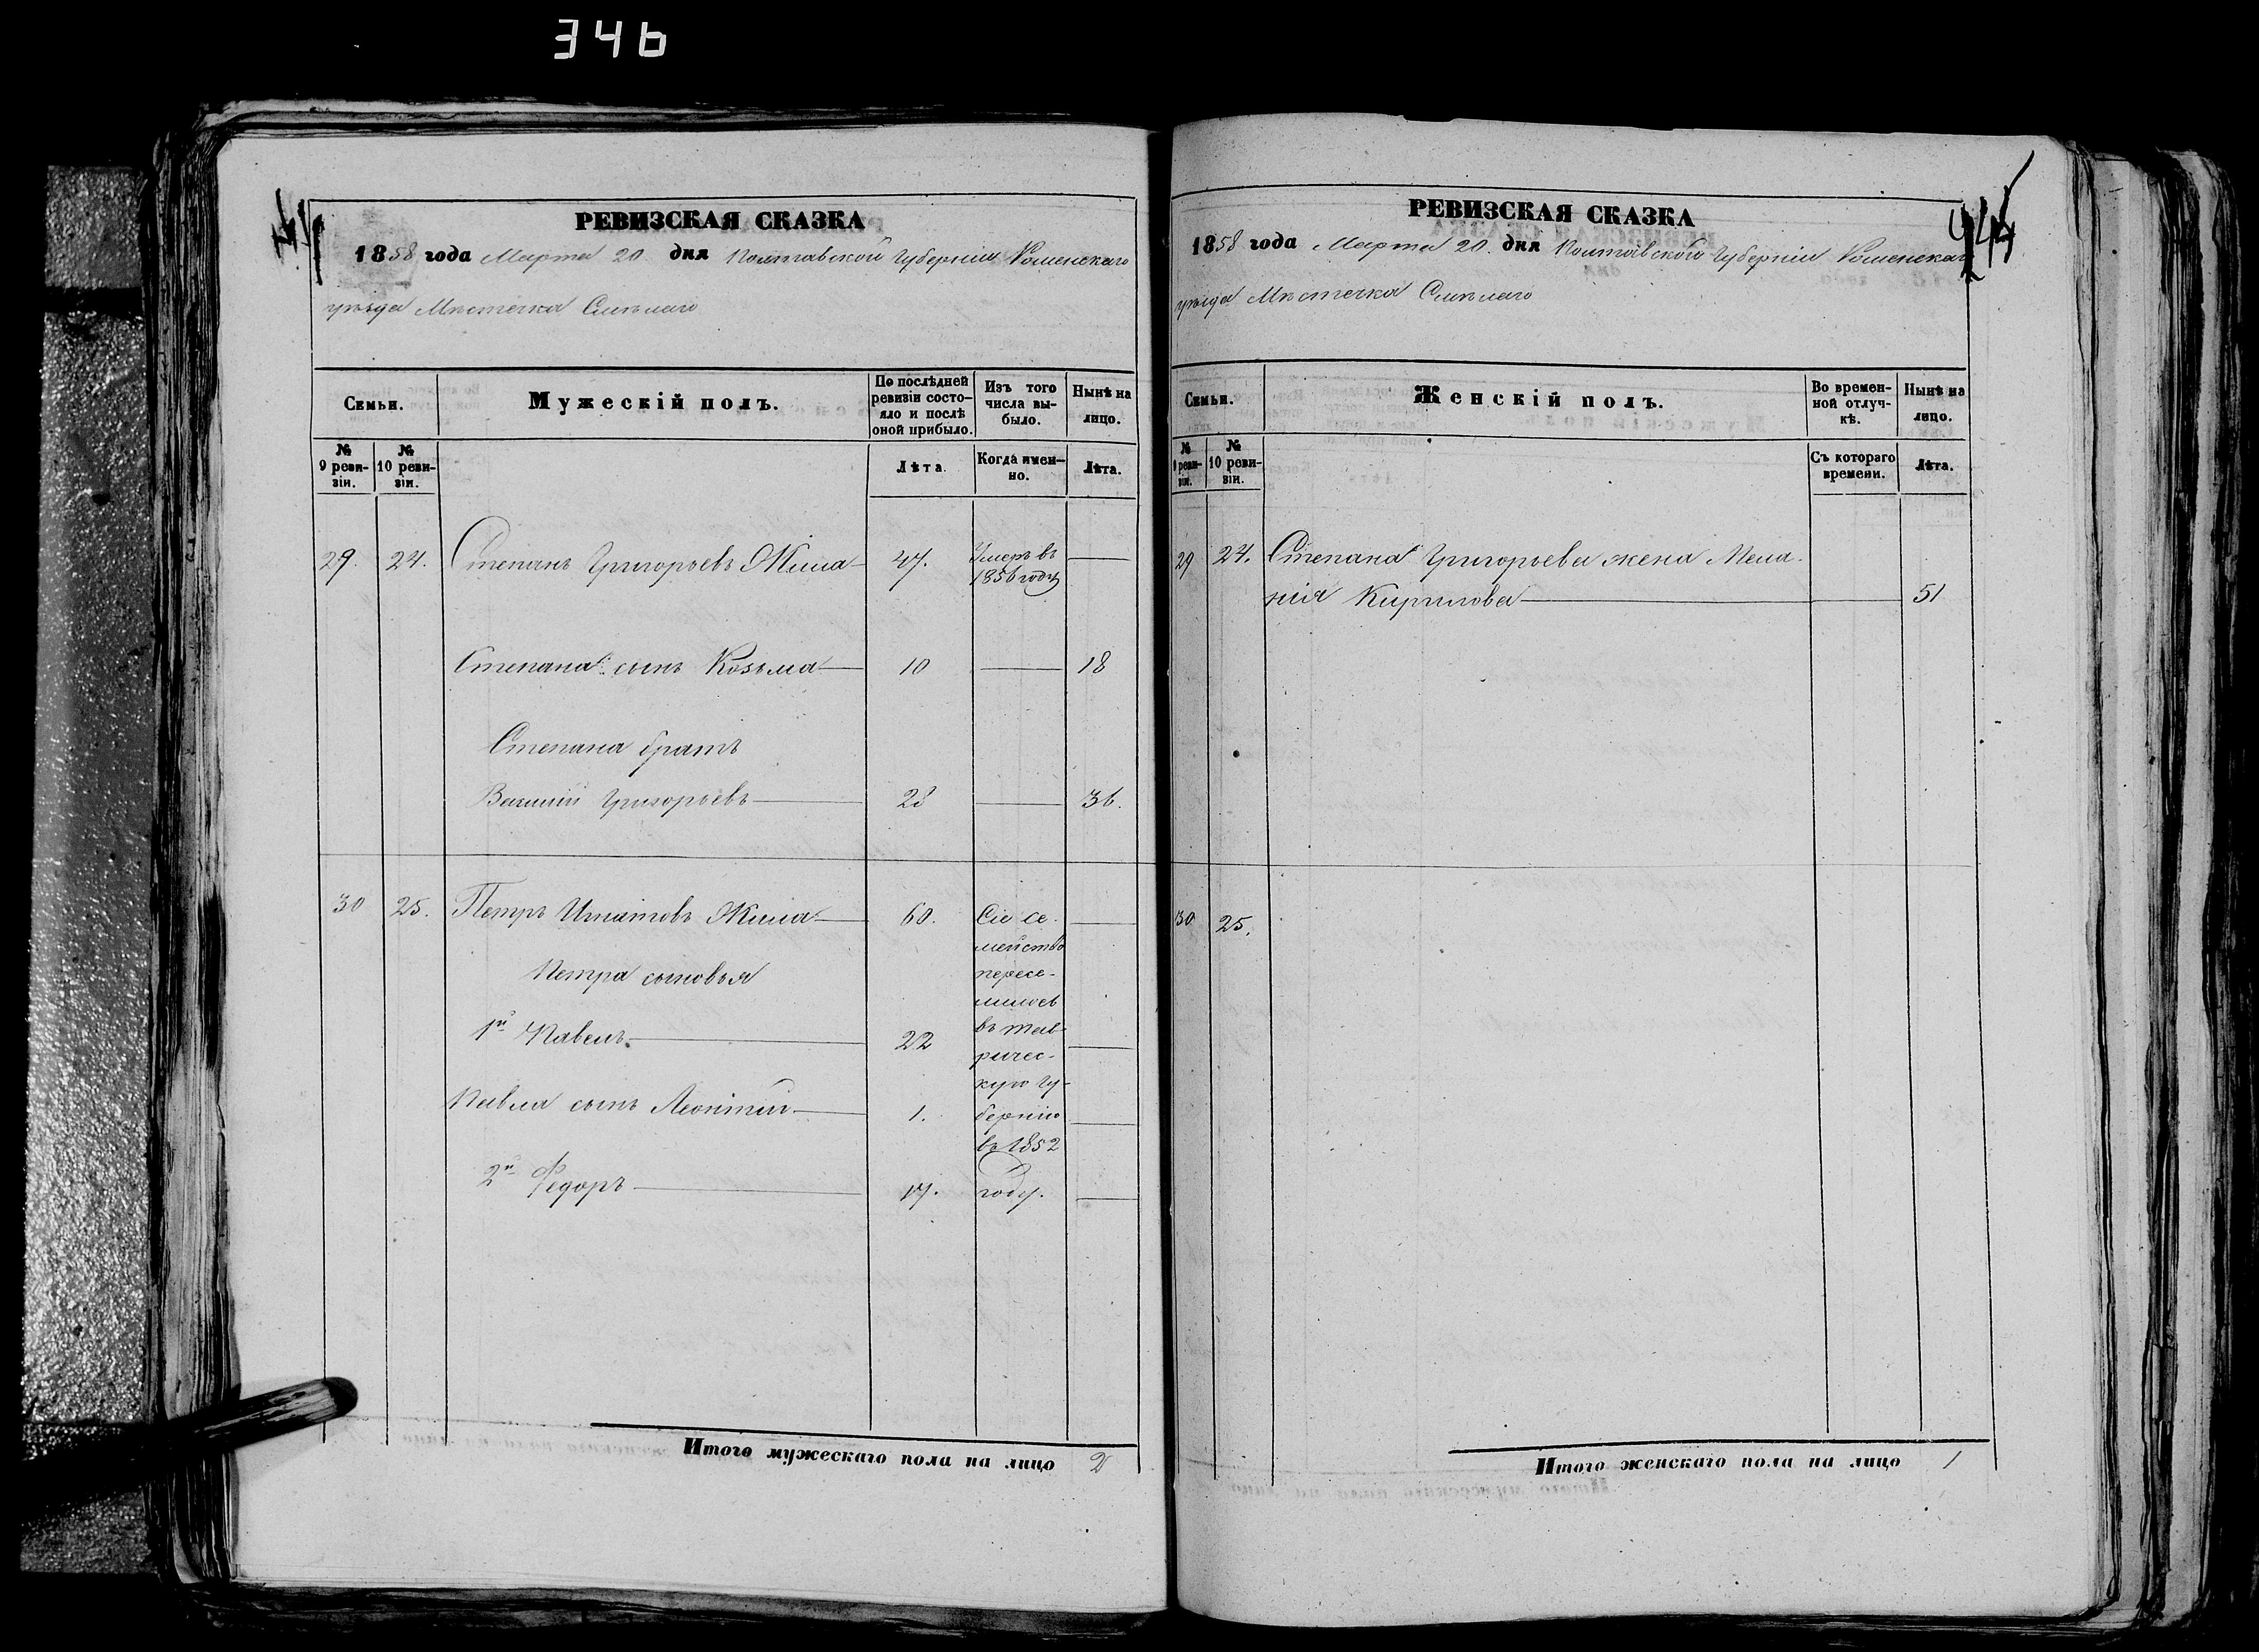 346
РЕВИЗСКАЯ СКАЗКА
1858 года Марта 20 дня Полтавской Губерніи Роменскаго
уѣзда Мѣстечка Смѣлаго
Семьи.
Мужескій полъ.
По послѣдней ревизіи состояло и послѣ оной прибыло.
Изъ того числа выбыло.
Нынѣ на лицо.
№ 9 ревизіи.
№ 10 ревизіи.
Лѣта.
Когда именно.
Лѣта.
29. 24. Степанъ Григорьевъ 47. Умеръ въ 1856 году
Степана сынъ Козьма 10 18
Степана братъ
Василій Григорьевъ 28 36.
30 25. Петръ Игнатовъ 60. Сіе се-
мейство
Петра сыновья пересе-
лилось
1й Павелъ 22 въ Тав-
ричес-
кую Гу-
Павла сынъ Леонтій 1. бернію
въ 1852
2й Федоръ 17. году.
Итого мужескаго пола на лицо 2
РЕВИЗСКАЯ СКАЗКА
1858 года Марта 20. дня Полтавской Губерніи Роменскаго
уѣзда Мѣстечка Смѣлаго
Семьи.
Женскій полъ.
Во времен-
ной отлуч-
кѣ.
Нынѣ на
лицо.
№ 9 ревизіи.
№ 10 ревизіи.
Съ котораго
времени.
Лѣта.
29 24. Степана Григорьева жена Мела-
нія Кирилова 51
30 25.
Итого женскаго пола на лицо 1